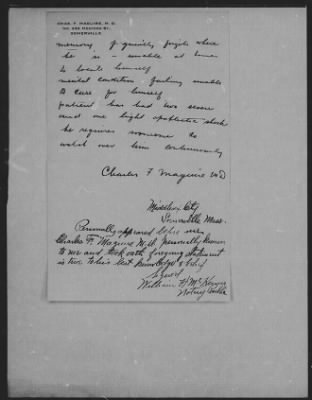 CHAS. F. MAGUIRE, M. D.
SOMERVILLE.
memory & quickly forgets where
he is - unable at times
to locate himself
mental condition failing unable
to care for himself
patient has had two severe
and one light apoplectic shock
he requires someone to
watch over him continuously
Charles F Maguire MD
Middlesex Cty
Somerville Mass.
Personally appeared before me
Charles F. Maguire M.D. personally known
to me and took oath foregoing statement
is true to his best knowledge & belief
Signed
William H McKenna
Notary Public